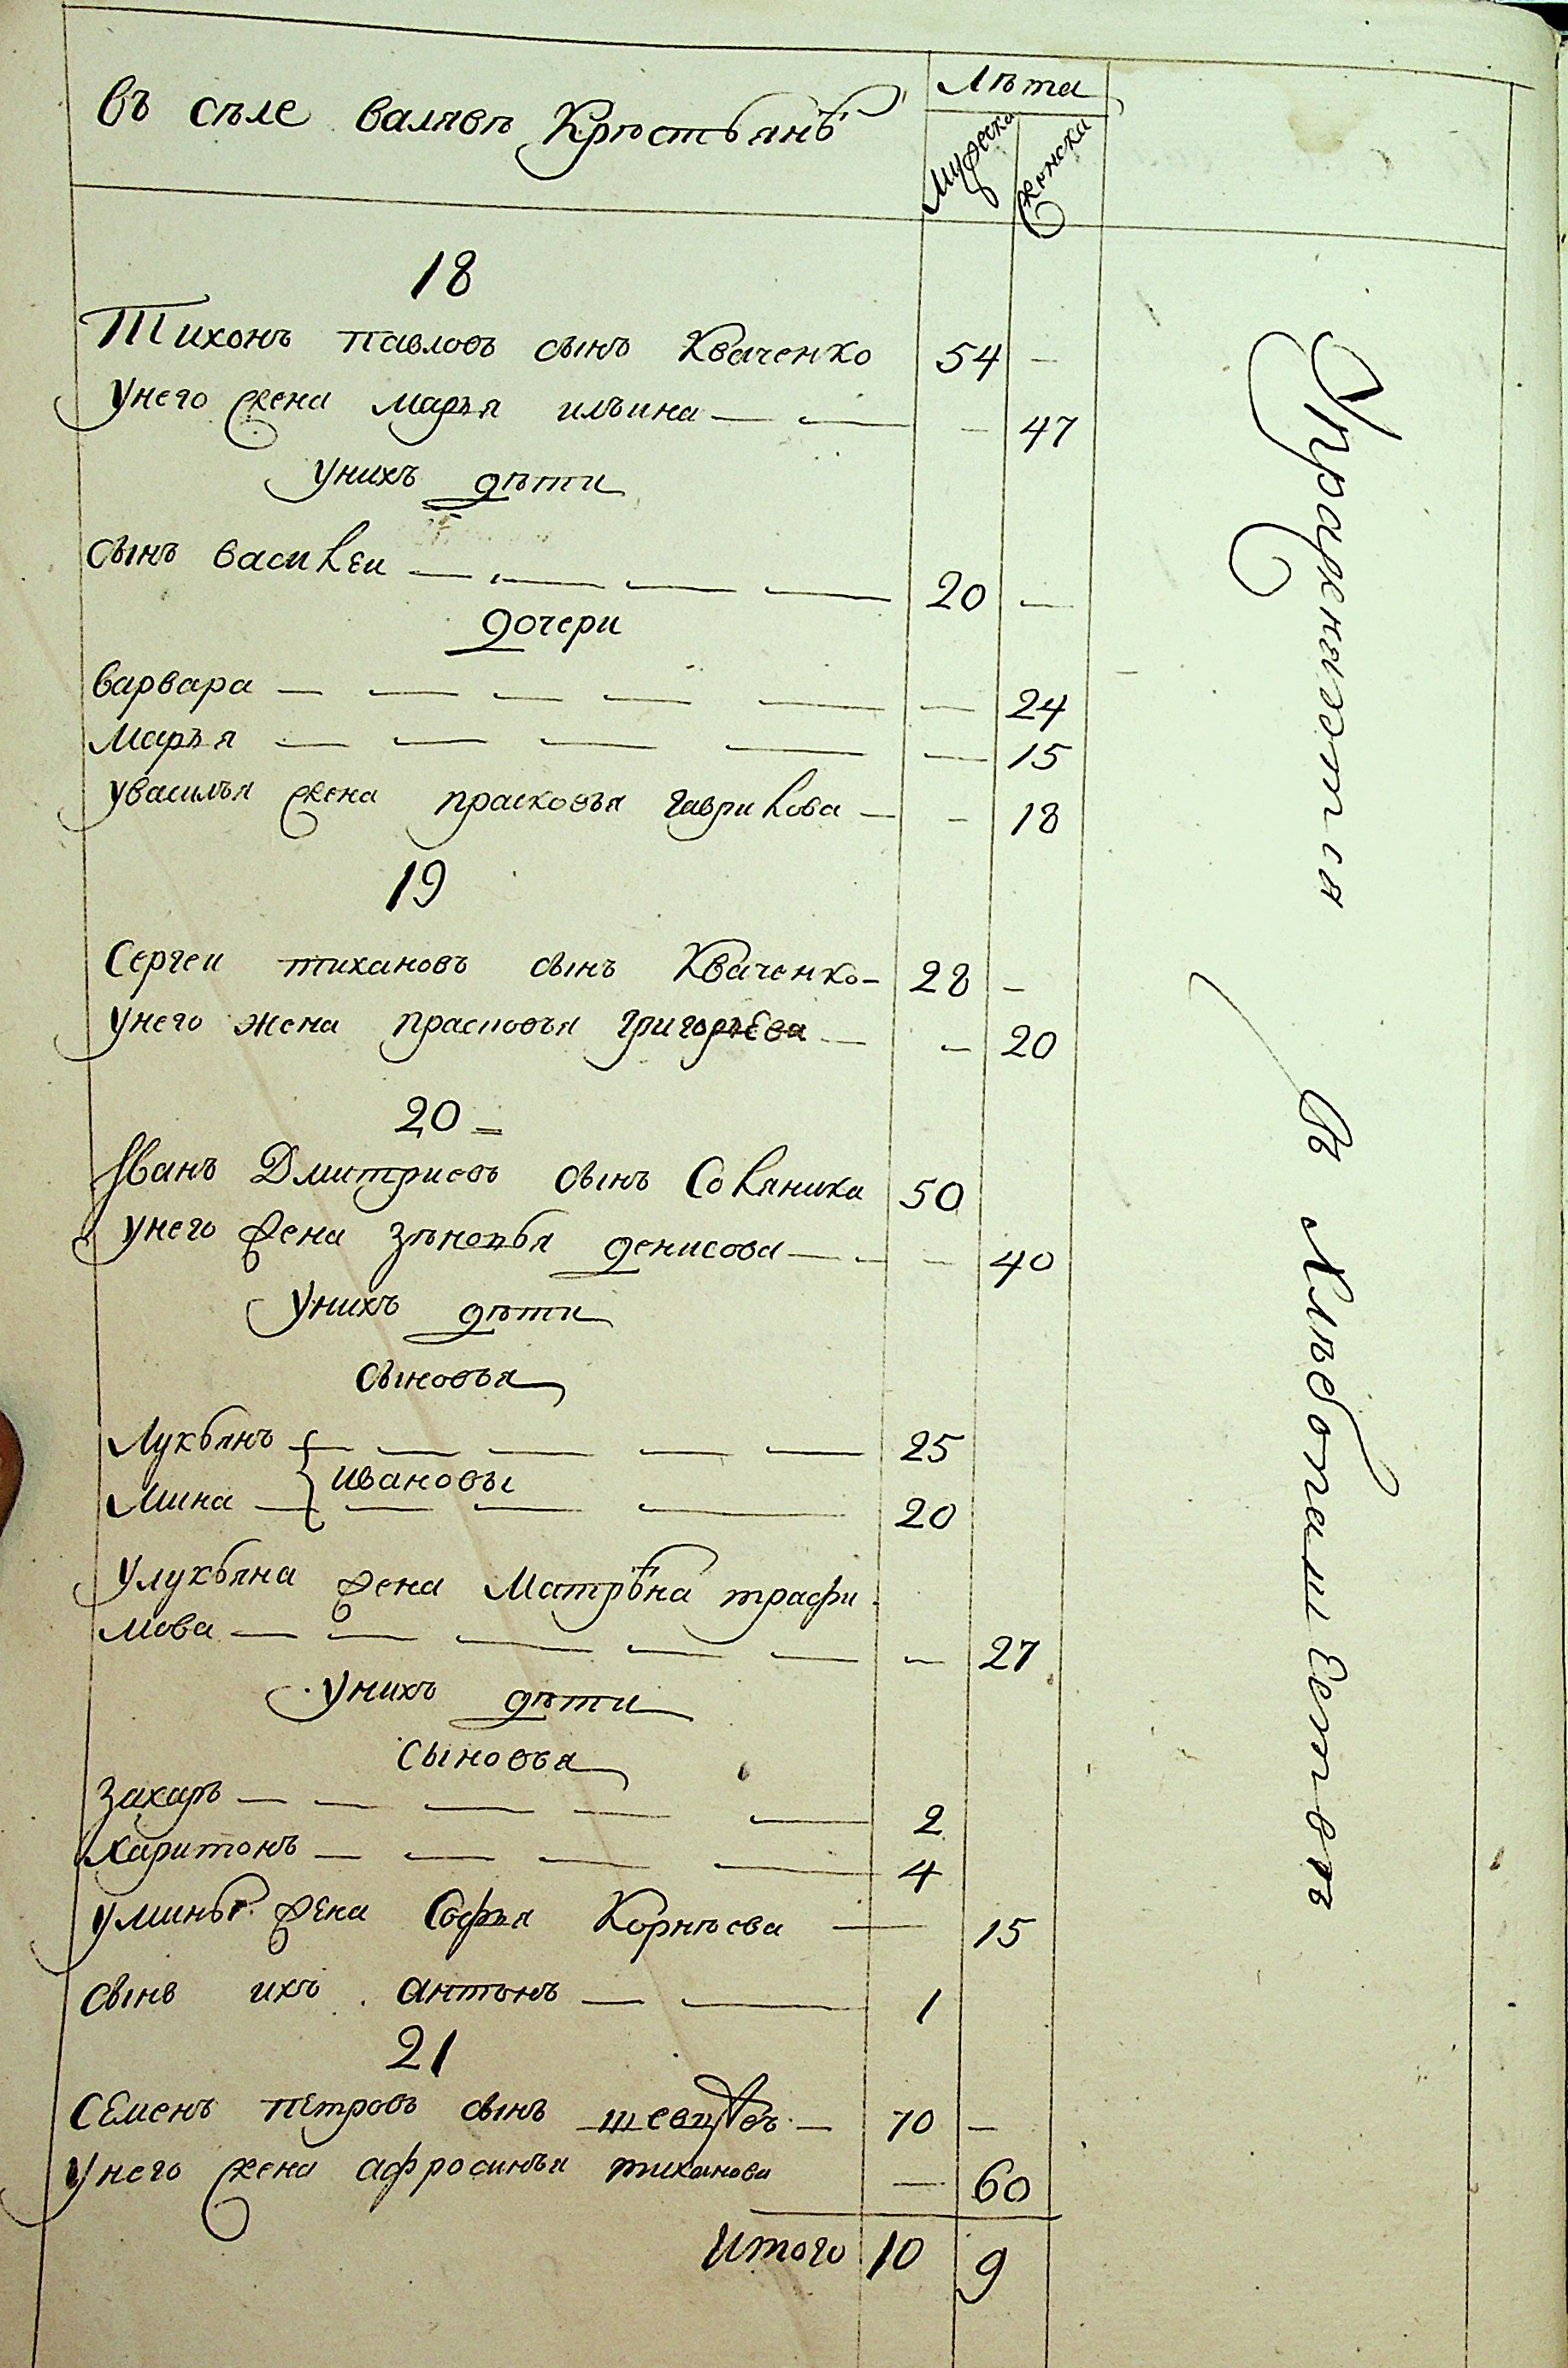 въ сѣле валявѣ Крѣстьянъ
Лѣта
Мужеска
женска
18
Тихонъ павловъ сынъ Кваченко 54 —
унего жена марья ильина — — — 47
унихъ дѣти
сынъ василеи — — — — 20 —
дочери
варвара — — — — — — 24
марья — — — — — 15
увасилья жена прасковья гаврилова — — 18
19
Сергеи тихановъ сынъ Кваченко — 28 —
унего жена прасковья григорьева — — 20
20
Иванъ Дмитриевъ сынъ Соляника 50
унего жена зѣновья денисова — — — 40
унихъ дѣти
сыновья
Лукьянъ — — — — — 25
ивановы
Мина — — — — 20
улукьяна жена Матрѣна трафи
мова — — — — — — 27
унихъ дѣти
сыновья
захаръ — — — — — 2
харитонъ — — — — 4
умины жена Софья Корнѣева — 15
сынъ ихъ антонъ — — 1
21
Семенъ петровъ сынъ шевцовъ — 70 —
унего жена афросинья тиханова — 60
Итого 10 9
Упражняются
въ Хлѣбопашествѣ